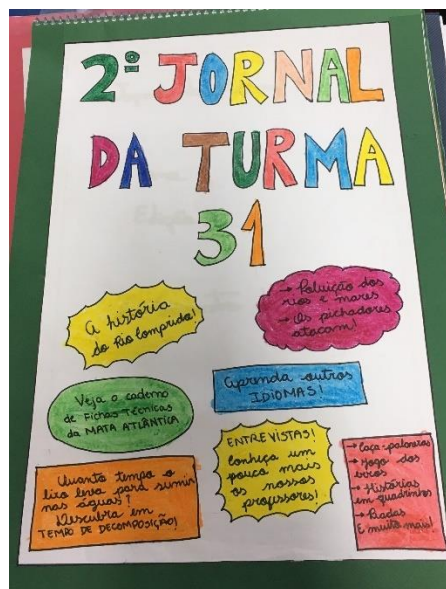 2º JORNAL
DA TURMA
31
A história
do Rio Comprido!
→ Poluição dos
rios e mares
→ Os pichadores
atacam!
Veja o caderno
de Fichas Técnicas
da MATA ATLÂNTICA
aprenda outros
IDIOMAS!
Quanto tempo o
lixo leva para sumir
nas águas?
Descubra em
TEMPO DE DECOMPOSIÇÃO!
ENTREVISTAS!
Conheça um
pouco mais
os nossos
professores!
→ Caça-palavras
→ Jogo dos
erros
→ Histórias
em quadrinhos
→ Piadas
E muito mais!